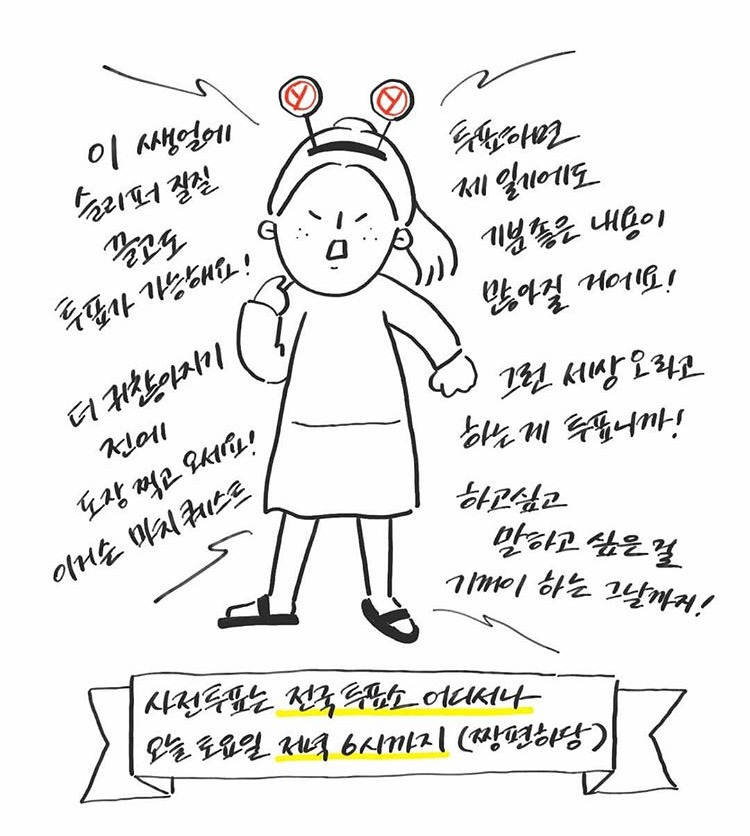 이 쌩얼에
슬리퍼 질질
끌고도
투표가 가능해요!
더 귀찮아지기
전에
도장 찍고 오세요!
이거슨 마치 퀘스트
투표하면
제 일기에도
기분좋은 내용이
많아질 거에요!
그런 세상 오라고
하는게 투표니까!
하고싶고
말하고 싶은걸
기꺼이 하는 그날까지!
사전투표는 전국 투표소 어디서나
오늘 토요일 저녁 6시까지 (짱편하당)